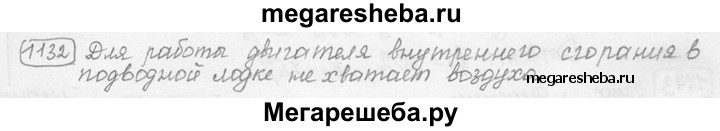 megaresheba.ru
1132 Для работы двигателя внутреннего сгорания в
подводной лодке не хватает воздуха
megaresheba.ru
Мегарешеба.ру